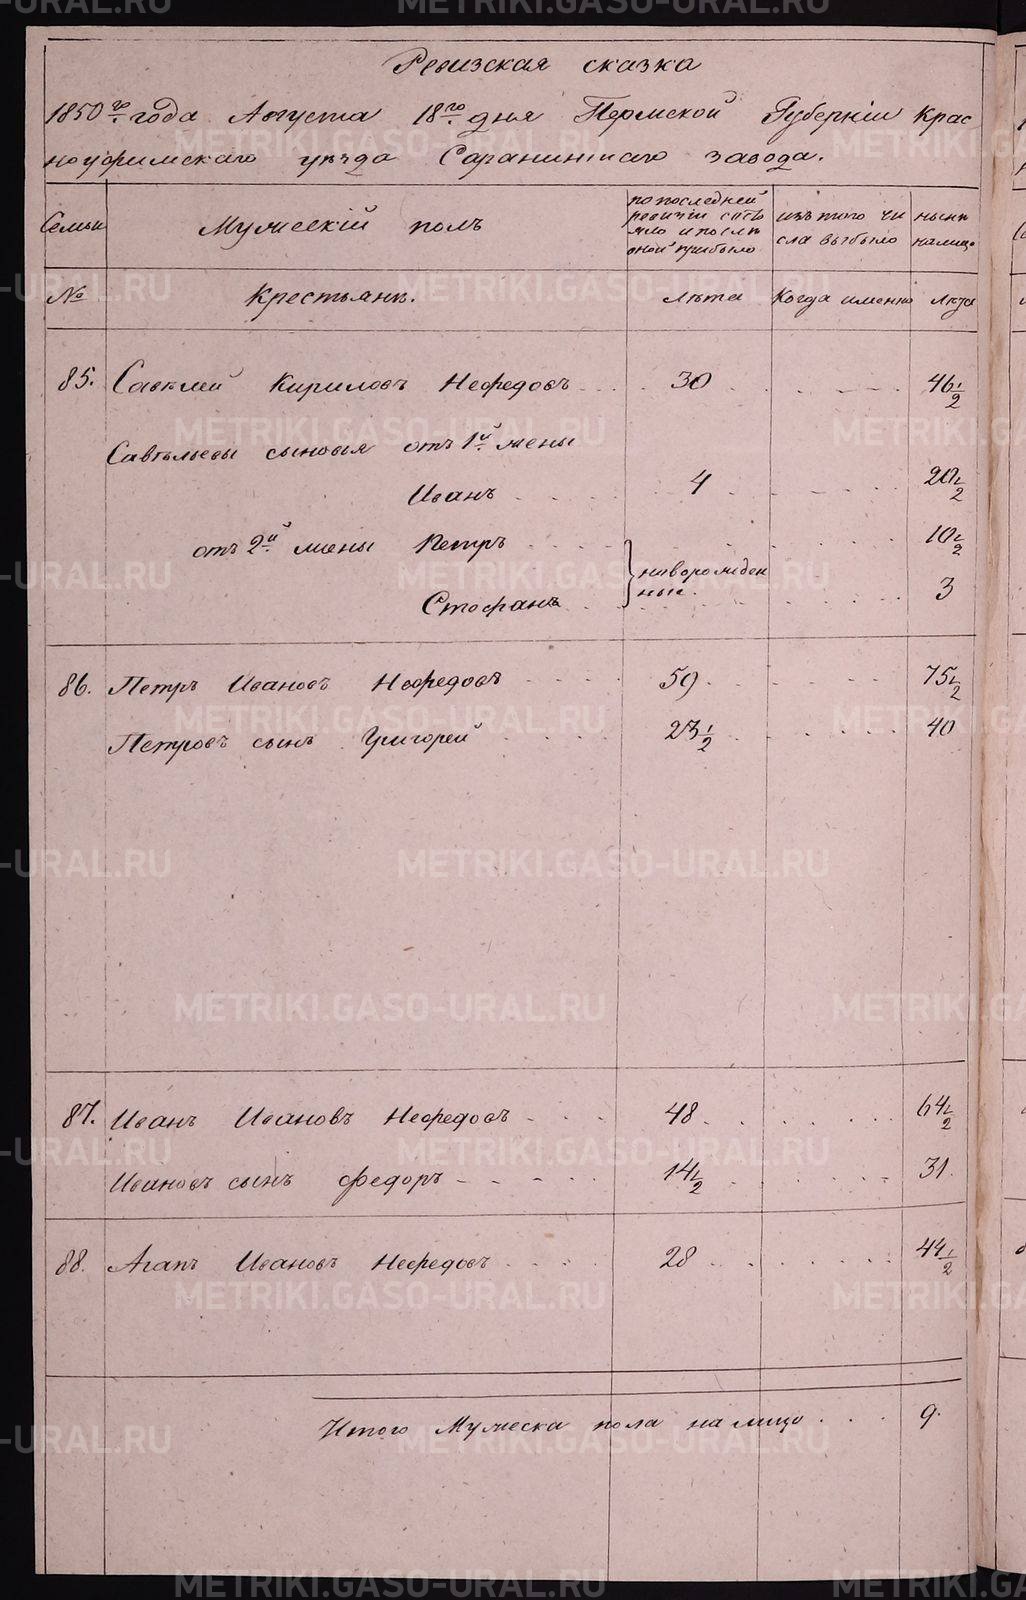 Ревизская сказка
1850го года Августа 18го дня Пермской Губерніи Крас
ноуфимскаго уѣзда Саранинскаго завода.
Семьи
Мужескій полъ
по последней
ревизіи состо
яло и послѣ
оной прибыло
изъ того чи
сла выбыло
нынѣ
на лицо
№
Крестьянѣ.
Лѣта
Когда именно
Лѣта
85. Савелей Кириловъ Нефедовъ 30 46 1/2
Савельевы сыновья отъ 1й жены
Иванъ 4 20 1/2
отъ 2й жены Петръ 10 1/2
новорожден
ные.
Стефанъ 3
86. Петръ Ивановъ Нефедовъ 59 75 1/2
Петровъ сынъ Григорей 23 1/2 40
87. Иванъ Ивановъ Нефедовъ 48 64 1/2
Ивановъ сынъ Федоръ 14 1/2 31
88. Агапъ Ивановъ Нефедовъ 28 44 1/2
Итого Мужеска пола на лицо 9.
METRIKI.GASO-URAL.RU